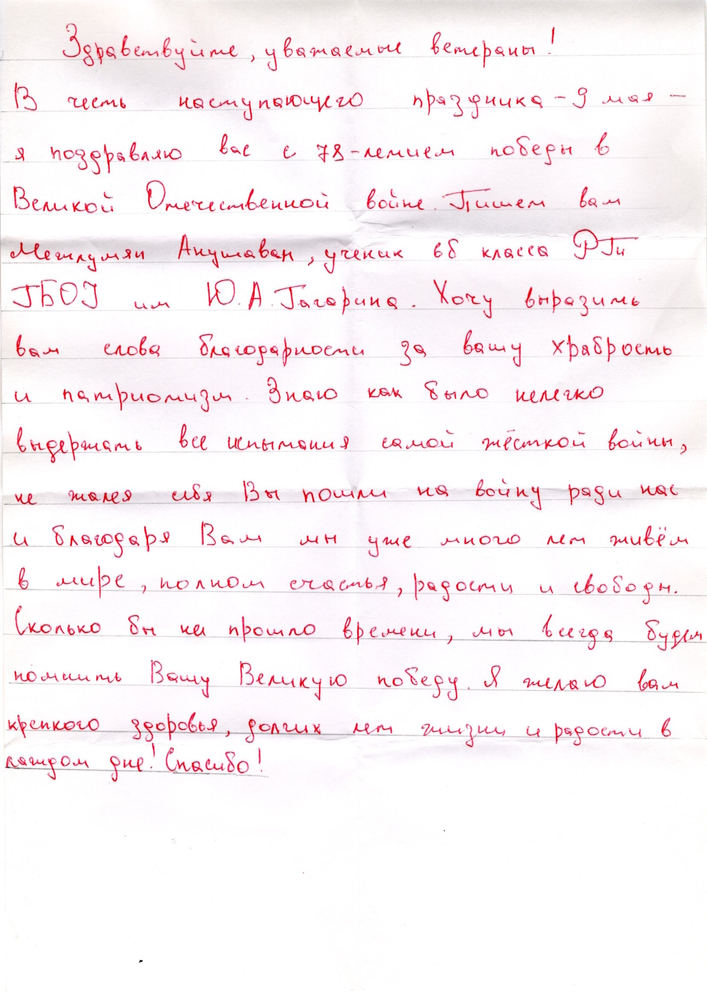 Здравствуйте, уважаемые ветераны!
В честь наступающего праздника - 9 мая -
я поздравляю вас с 78-летием победы в
Великой Отечественной войне. Пишет вам
Межлумян Анушаван, ученик 6б класса РГи
ГБОУ им Ю.А.Гагарина. Хочу выразить
вам слова благодарности за вашу храбрость
и патриотизм. Знаю как было нелегко
выдержать все испытания самой жёсткой войны,
не жалея себя Вы пошли на войну ради нас
и благодаря Вам мы уже много лет живём
в мире, полном счастья, радости и свободы.
Сколько бы не прошло времени, мы всегда будем
помнить Вашу Великую победу. Я желаю вам
крепкого здоровья, долгих лет жизни и радости в
каждом дне! Спасибо!